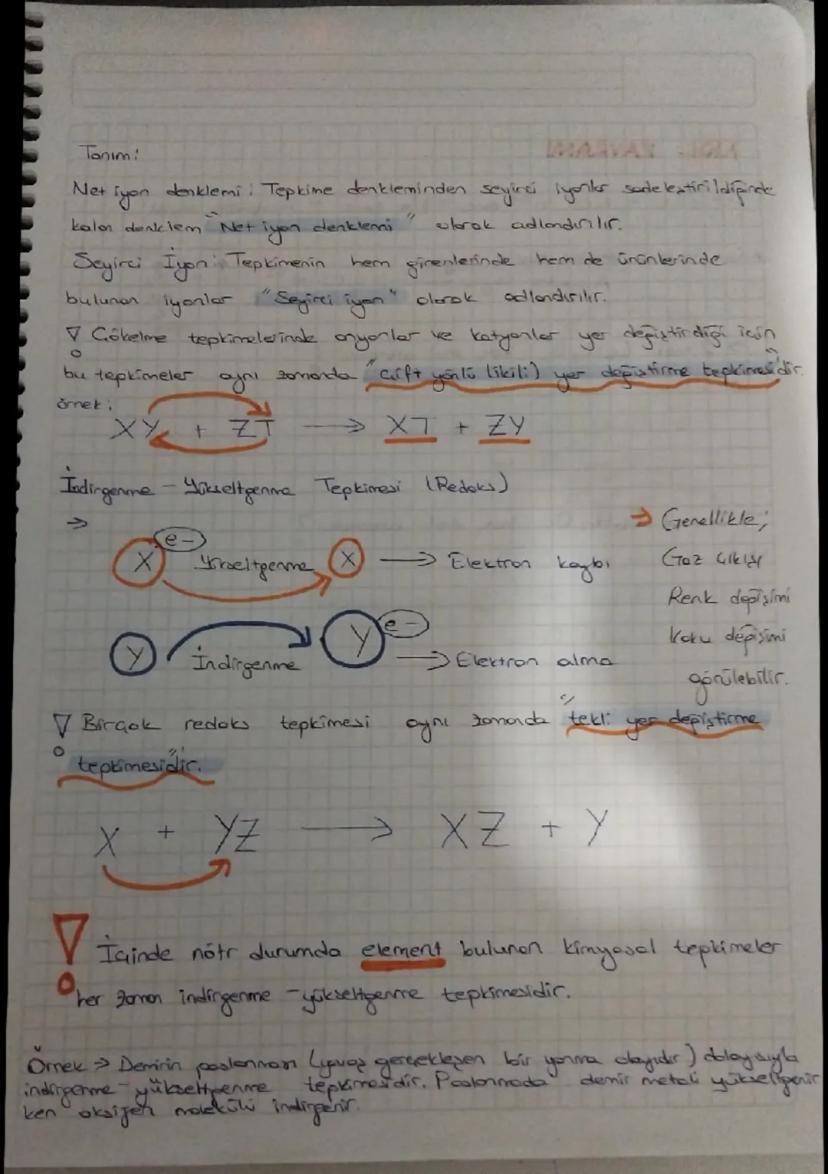 Tanım:
Net iyon denklemi: Tepkime denkleminden seyirci iyonlar sadeleştirildiğinde
kalan denklem "Net iyon denklemi" olarak adlandırılır.
Seyirci İyon: Tepkimenin hem girenlerinde hem de ürünlerinde
bulunan iyonlar "Seyirci iyon" olarak adlandırılır.
! Çökelme tepkimelerinde anyonlar ve katyonlar yer değiştirdiği için
bu tepkimeler aynı zamanda "çift yönlü (ikili) yer değiştirme tepkimesi"dir.
örnek:
XY + ZT → XT + ZY
İndirgenme - Yükseltgenme Tepkimesi (Redoks)
⇒
X e- Yükseltgenme X → Elektron kaybı
Y İndirgenme Y e- → Elektron alma
⇒ Genellikle;
Gaz çıkışı
Renk değişimi
Koku değişimi
görülebilir.
! Birçok redoks tepkimesi aynı zamanda "tekli yer değiştirme
tepkimesi"dir.
X + YZ → XZ + Y
! İçinde nötr durumda element bulunan kimyasal tepkimeler
her zaman indirgenme - yükseltgenme tepkimesidir.
Örnek ⇒ Demirin paslanması (yavaş gerçekleşen bir yanma olayıdır) dolayısıyla
indirgenme - yükseltgenme tepkimesidir. Paslanmada demir metali yükseltgenir
ken oksijen molekülü indirgenir.